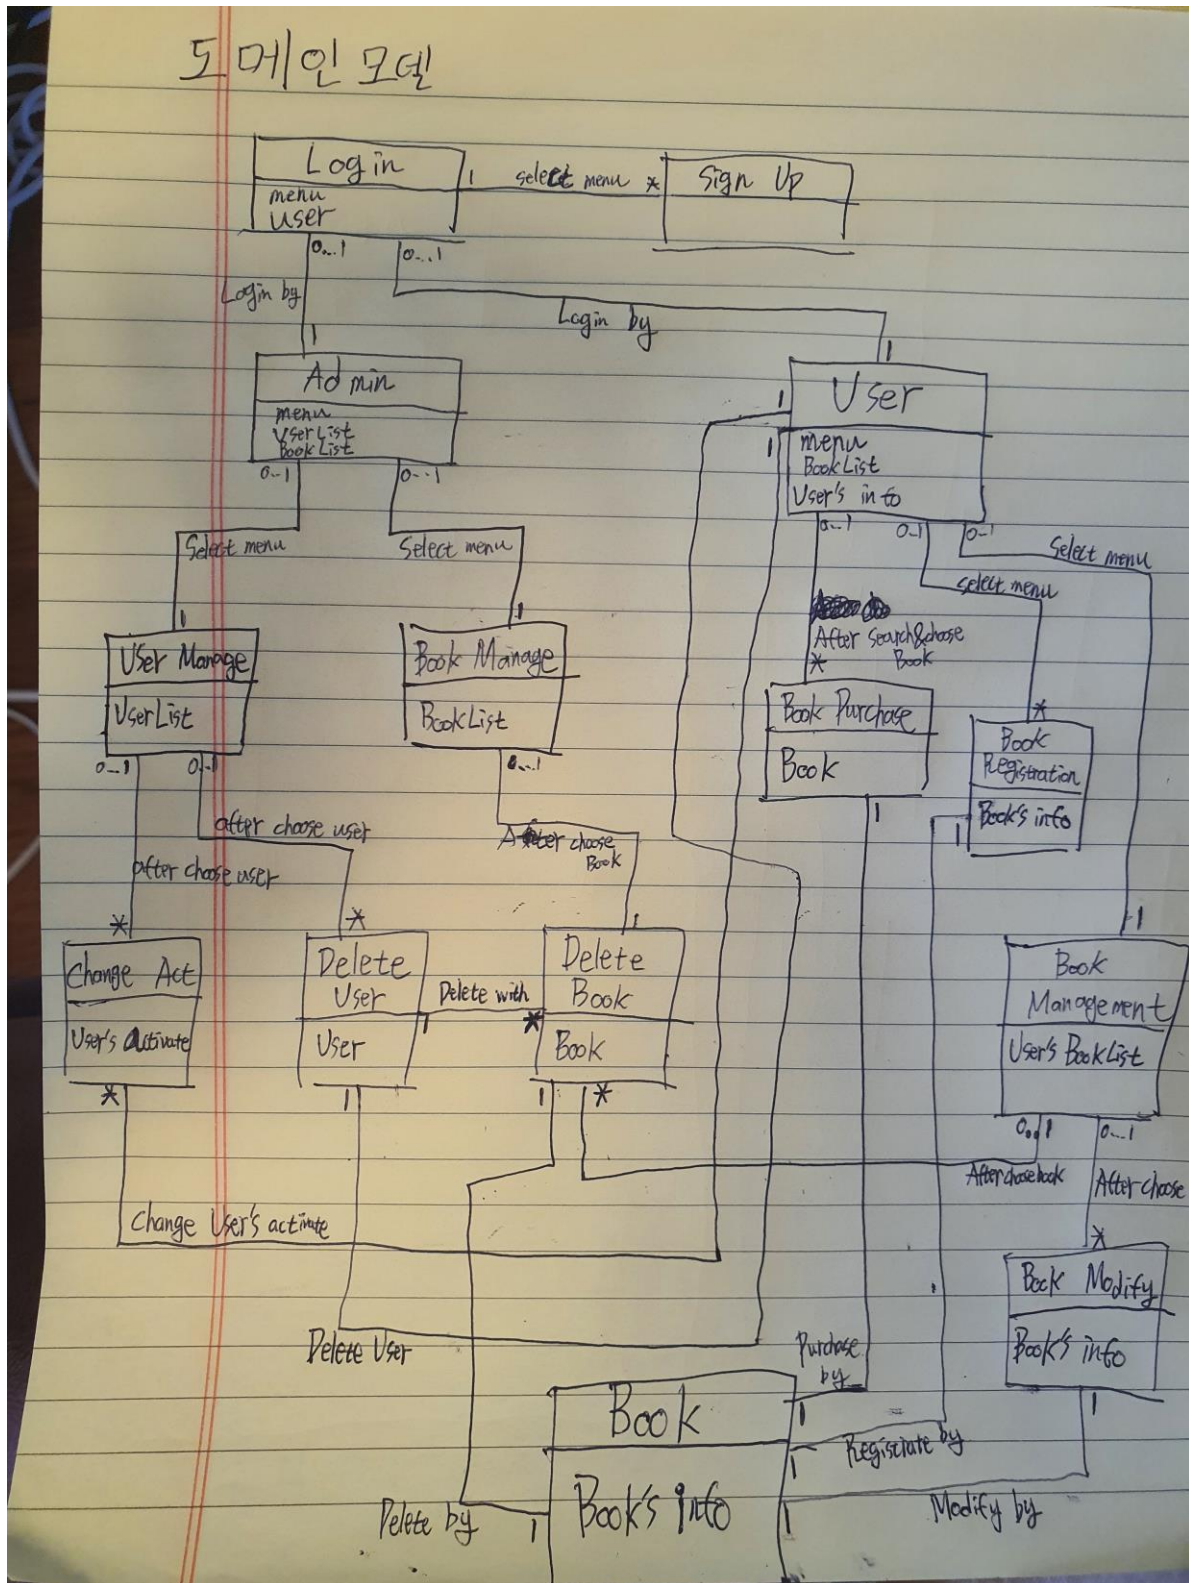 도메인 모델
Login
menu
user
1 select menu *
Sign Up
0...1
0...1
Login by
Login by
1
1
Admin
menu
UserList
BookList
User
menu
BookList
User's info
1
1
0...1
0...1
0...1
0...1
0...1
Select menu
Select menu
Select menu
select menu
After search&choose
Book
1
1
*
*
User Manage
UserList
Book Manage
BookList
Book Purchase
Book
Book
Registration
Book's info
0...1
0...1
0...1
1
1
after choose user
after choose user
After choose
Book
*
*
1
1
Change Act
User's activate
Delete
User
User
Delete with
1
*
Delete
Book
Book
Book
Management
User's BookList
*
1
1
*
0...1
0...1
After choose book
After choose
Change User's activate
*
Book Modify
Book's info
Delete User
Purchase
by
1
1
Book
Book's info
Registrate by
1
Delete by
1
1
Modify by